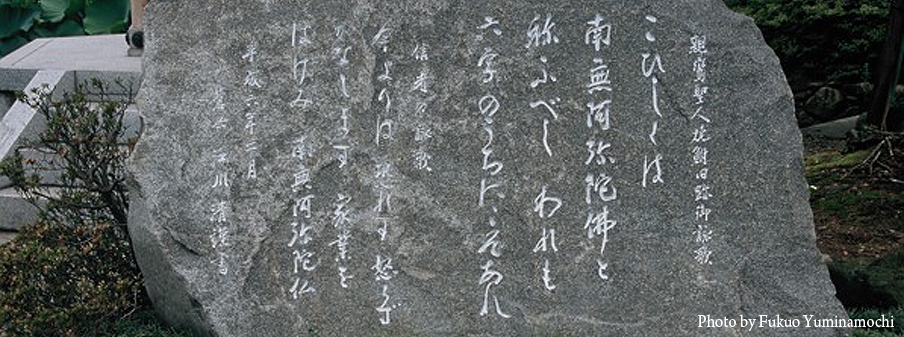 親鸞聖人御詠歌
こひしくは
南無阿弥陀佛と
称ふべし われも
六字のうちにこそあれ
信者の詠歌
今よりは 恐れず 怒らず
かなしまず 家業を
はげみ 南無阿弥陀仏
平成六年三月
川 清 書
Photo by Fukuo Yuminamochi